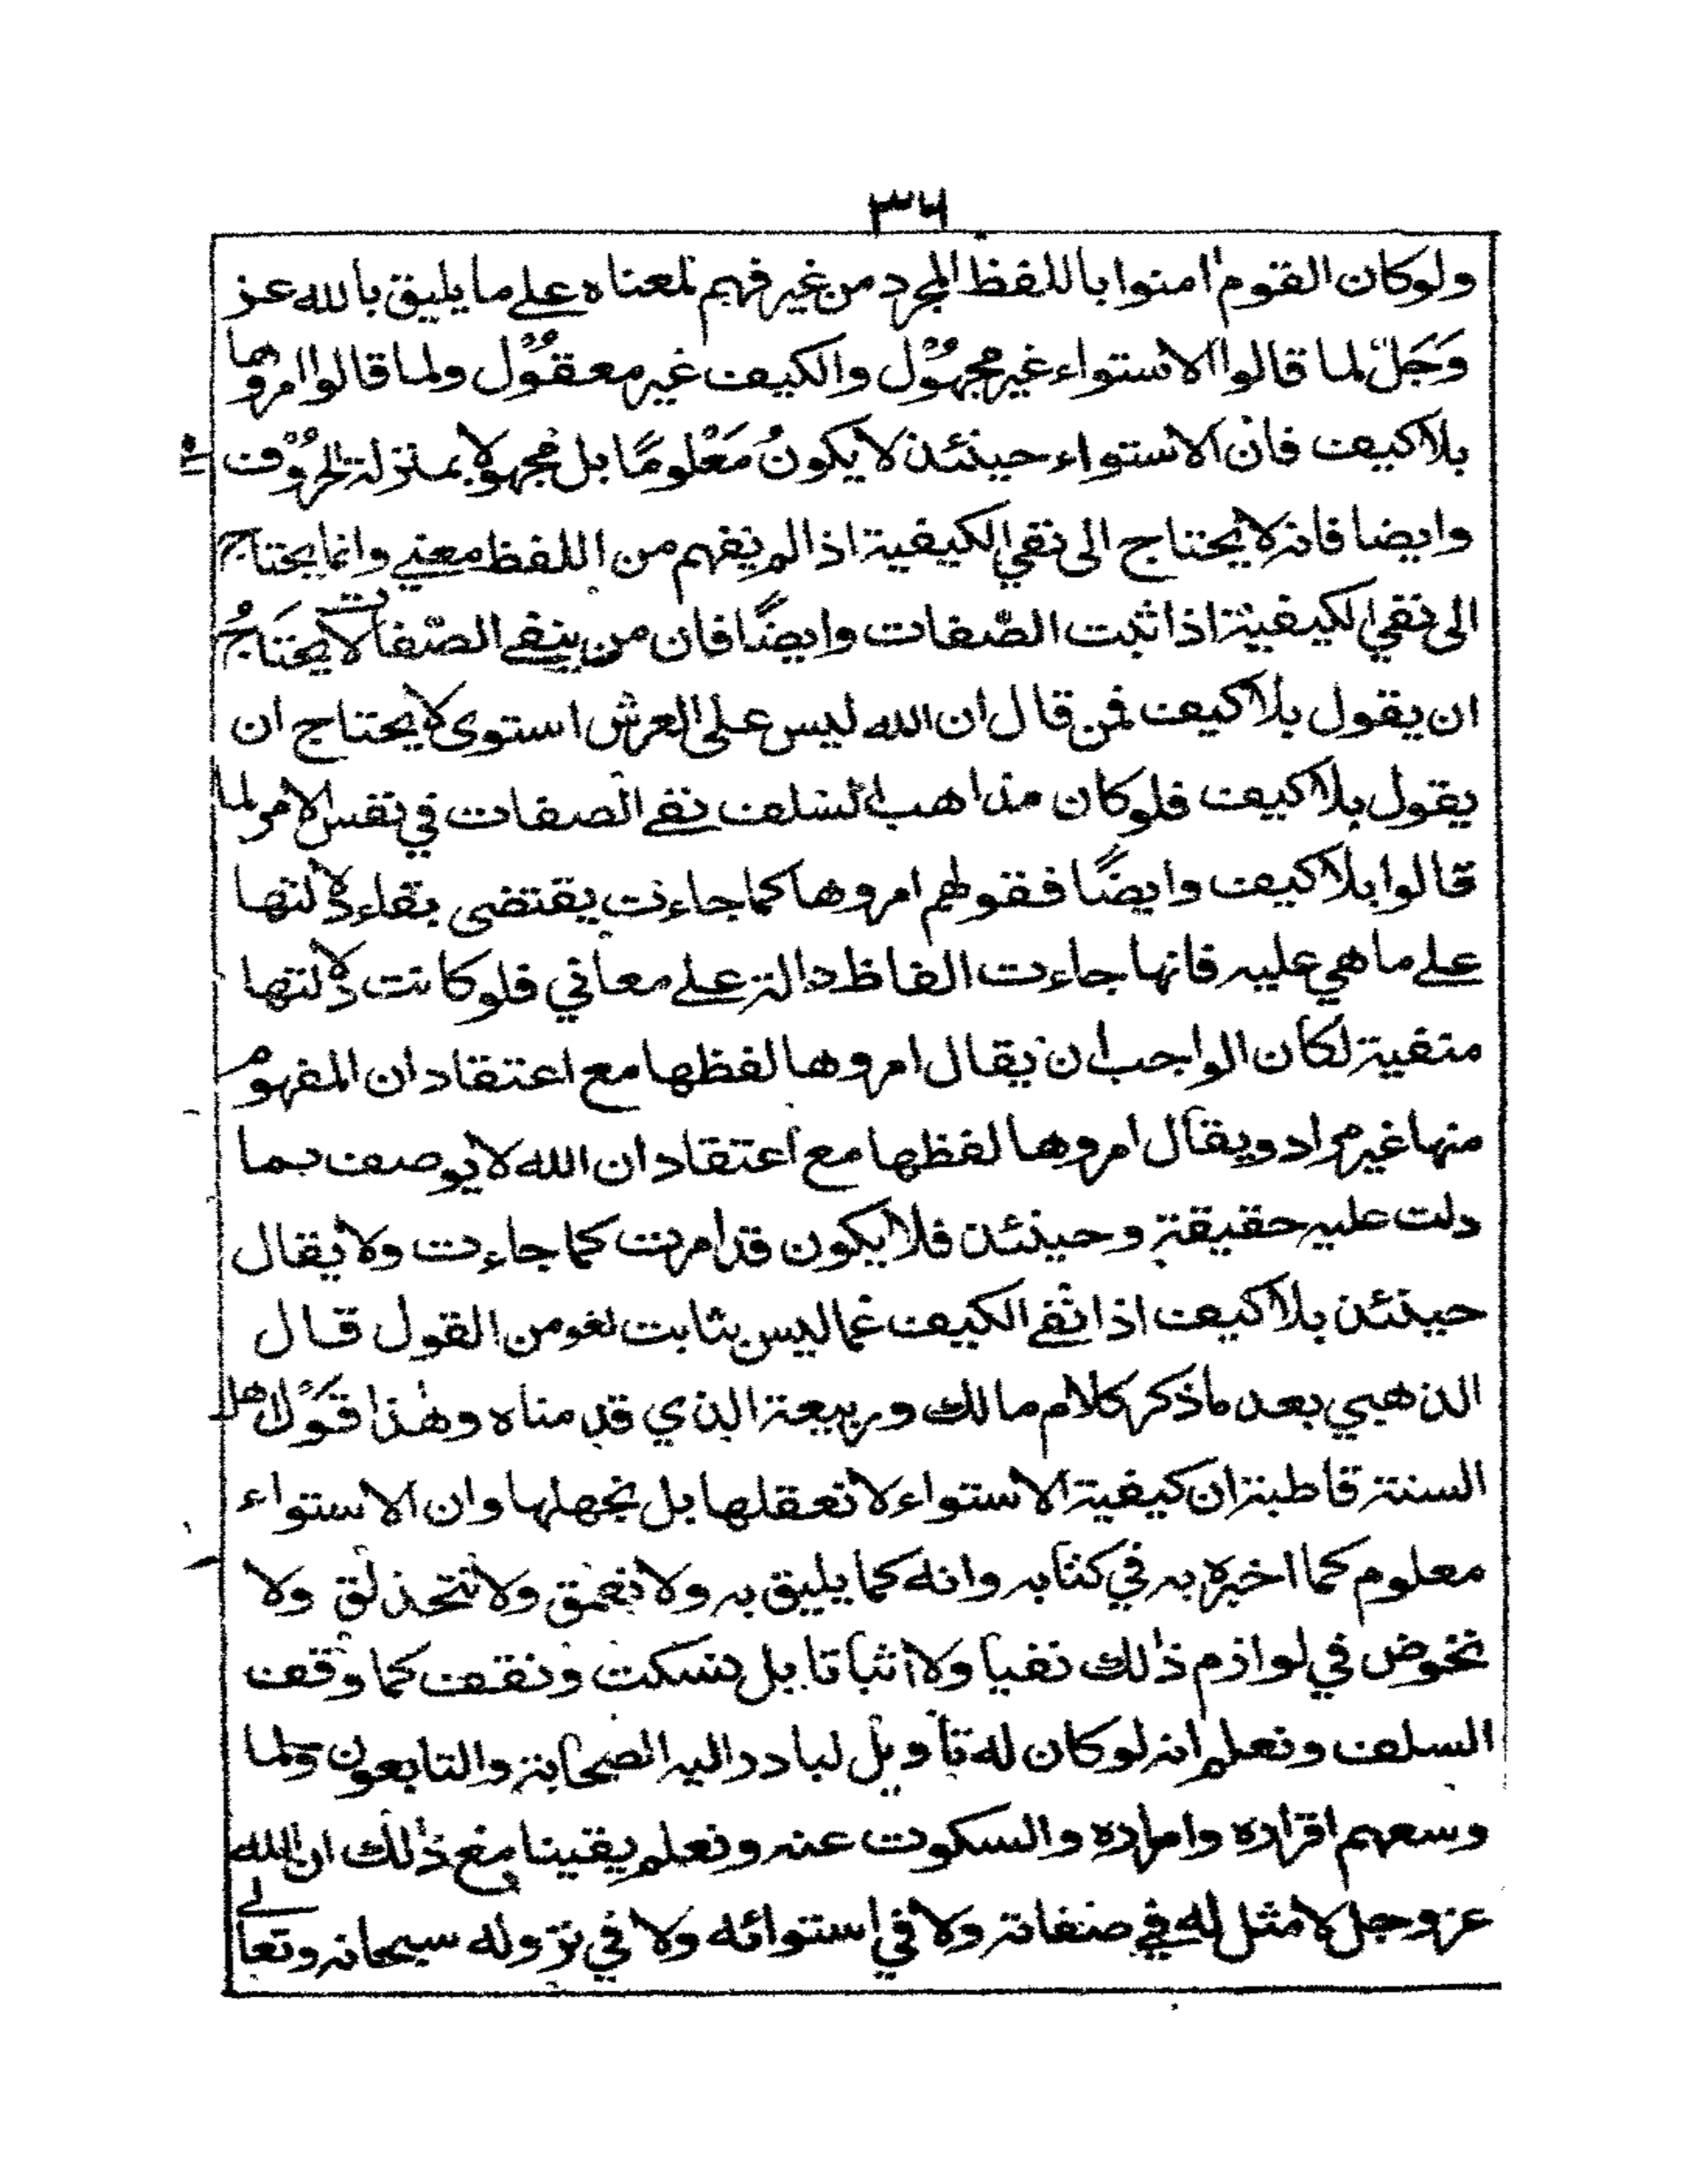 ٣٦
ولوكان القوم امنوا باللفظ المجرد من غير فهم لمعناه على ما يليق بالله عز
وَجَلّ لما قالوا الاستواء غير مجهُوْل والكيف غير معقُوْل ولما قالوا امروها
بلا كيف فان الاستواء حينئذ لا يكونُ مَعْلومًا بل مجهولا بمنزلة الحرُوْف
وايضا فانه لا يحتاج الى نفي الكيفية اذا لم يفهم من اللفظ معنى وانما يحتاج
الى نفي الكيفية اذا ثبت الصّفات وايضًا فان من ينفي الصّفات لا يحتَاجُ
ان يقول بلا كيف فمن قال ان الله ليس على العرش استوى لا يحتاج ان
يقول بلا كيف فلوكان مذاهب السلف نفي الصفات في نفس الامر لما
قالوا بلا كيف وايضًا فقولهم امروها كما جاءت يقتضى بقاء دلالتها
على ما هي عليه فانها جاءت الفاظ دالة على معاني فلو كانت دلالتها
منفية لكان الواجب ان يقال امروها لفظها مع اعتقاد ان المفهوم
منها غير مراد ويقال امروها لفظها مع اعتقاد ان الله لا يوصف بما
دلت عليه حقيقة وحينئذ فلا يكون قد امرت كما جاءت ولا يقال
حينئذ بلا كيف اذا نفي الكيف عما ليس بثابت لغو من القول قال
الذهبي بعد ما ذكر كلام مالك وربيعة الذي قدمناه وهٰذا قَوْل اهل
السنة قاطبة ان كيفية الاستواء لا نعقلها بل نجهلها وان الاستواء
معلوم كما اخبر به في كتابه وانه كما يليق به ولا نعمق ولا نتحذلق ولا
نخوض في لوازم ذٰلك نفيا ولا اثباتا بل نسكت ونقف كما وقف
السلف ونعلم انه لو كان له تأويل لبادر اليه الصحابة والتابعون ولما
وسعهم اقراره وامراره والسكوت عنه ونعلم يقينا مع ذٰلك ان الله
عز وجل لا مثل له في صفاته ولا في استوائه ولا في نزوله سبحانه وتعالى